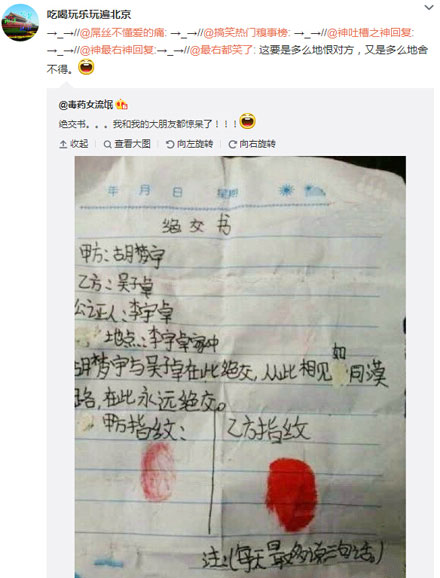 吃喝玩乐玩遍北京
→_→//@屌丝不懂爱的痛: →_→//@搞笑热门糗事榜: →_→//@神吐槽之神回复:
→_→//@神最右神回复:→_→//@最右都笑了: 这要是多么地恨对方，又是多么地舍
不得。
@毒药女流氓
绝交书。。。我和我的大朋友都惊呆了！！！
收起 查看大图 向左旋转 向右旋转
年 月 日 星期
绝交书
甲方:胡梦宇
乙方:吴子卓
公证人:李宇卓
地点:李宇卓家中
胡梦宇与吴子卓在此绝交,从此相见如同漠
路,在此永远绝交。
甲方指纹: 乙方指纹
注:(每天最多读三句话)